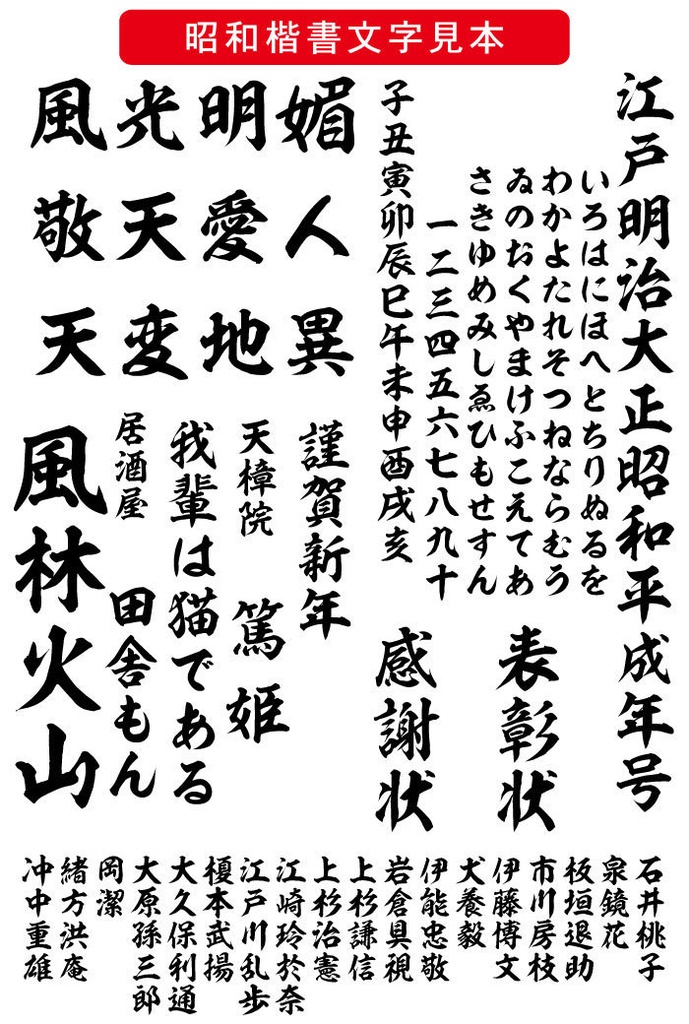 昭和楷書文字見本
江戸明治大正昭和平成年号
いろはにほへとちりぬるを
わかよたれそつねならむう
ゐのおくやまけふこえてあ
さきゆめみしゑひもせすん
一二三四五六七八九十
子丑寅卯辰巳午未申酉戌亥
表彰状
感謝状
媚人異
明愛地
光天変
風敬天
謹賀新年
天樟院 篤姫
我輩は猫である
居酒屋 田舎もん
風林火山
石井桃子
泉鏡花
板垣退助
市川房枝
伊藤博文
犬養毅
伊能忠敬
岩倉具視
上杉謙信
上杉治憲
江崎玲於奈
江戸川乱歩
榎本武揚
大久保利通
大原孫三郎
岡潔
緒方洪庵
沖中重雄